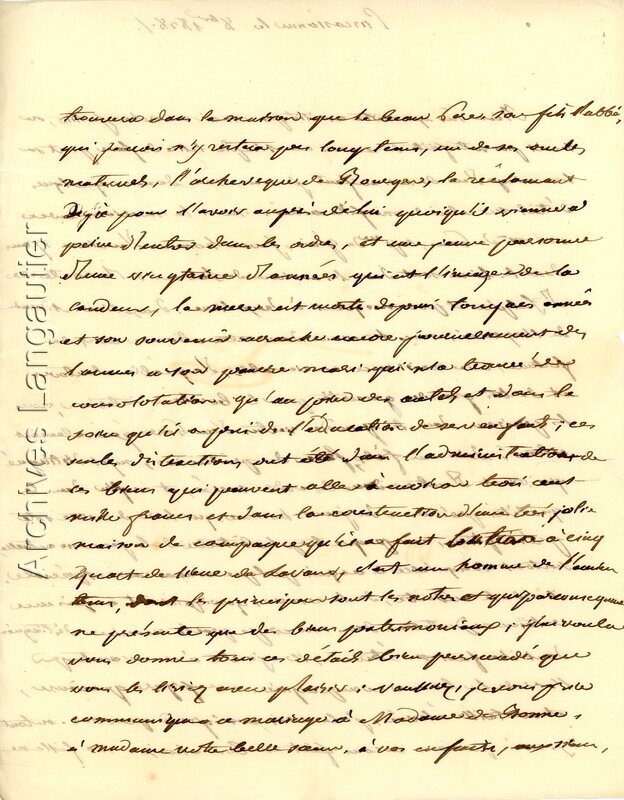 trouvera dans la maison que le beau Père, son fils l'abbé,
qui jamais n'y restera pas long tems, un de ses oncles
maternels, l'archeveque de Bourges, la réclamant
Déjà pour l'avoir auprès de lui quoiqu'il vienne à
peine d'entrer dans les ordres, et une jeune personne
d'une vingtaine d'années qui est l'image de la
candeur, la mere est morte depuis longues années
et son souvenir arrache encore journellement des
larmes a son pauvre mari qui n'a trouvé de
consolotation qu'au pied des autels et dans le
soin qu'il a pris de l'éducation de ses enfants; ses
seules distractions ont été dans l'administration de
ses biens qui peuvent aller à environ trois cent
mille francs et dans la construction d'une très jolie
maison de campagne qu'il a fait à cinq
Quart de lieue de Lavaur, c'est un homme de l'ancien
tems, dont les principes sont les notres et qui par conséquent
ne présente que des biens patrimoniaux; j'ai voulu
vous donner tous ces détails bien persuadé que
vous les liriez avec plaisir; veuillez, je vous prie
communiquer ce mariage à Madame de Bonne,
à madame votre belle sœur, à vos enfants,
Archives Langautier